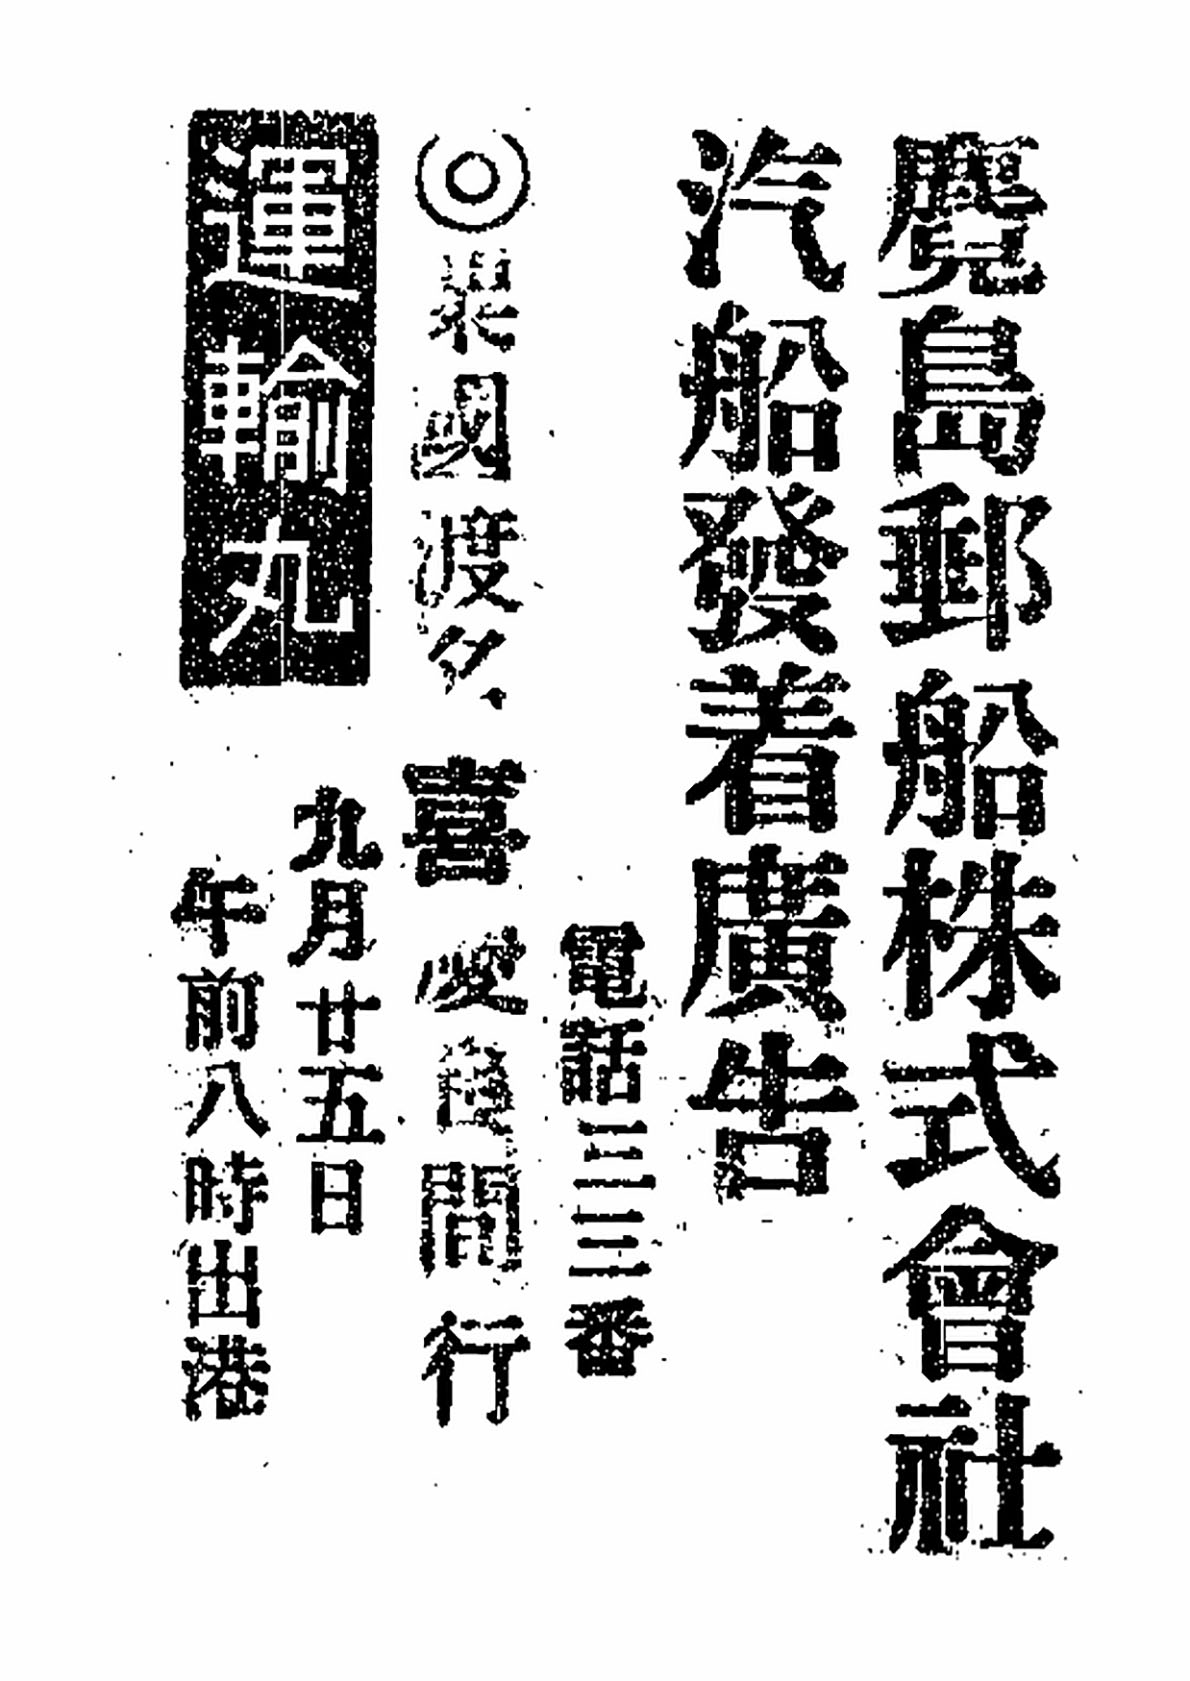 麑島郵船株式會社
汽船發着廣告
電話三三番
◎粟國渡名喜慶良間行
運輸丸
九月廿五日
午前八時出港